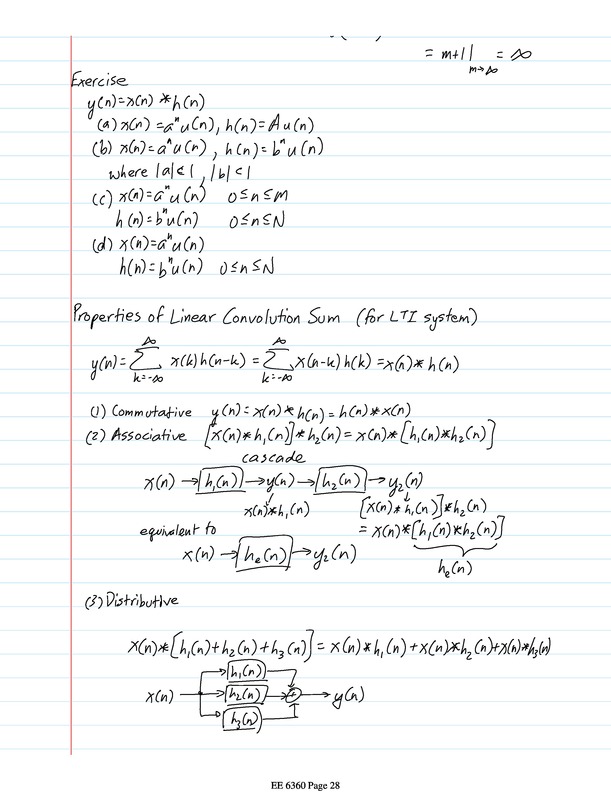 = m+1 | = ∞
m→∞
Exercise
y(n)=x(n) * h(n)
(a) x(n) = aⁿu(n), h(n)= Au(n)
(b) x(n)=aⁿu(n), h(n)=bⁿu(n)
where |a|<1, |b|<1
(c) x(n)=aⁿu(n) 0≤n≤M
h(n)=bⁿu(n) 0≤n≤N
(d) x(n)=aⁿu(n)
h(n)=bⁿu(n) 0≤n≤N
Properties of Linear Convolution Sum (for LTI system)
y(n)= ∑_{k=-∞}^{∞} x(k)h(n-k) = ∑_{k=-∞}^{∞} x(n-k)h(k) = x(n)*h(n)
(1) Commutative y(n)=x(n)*h(n)=h(n)*x(n)
(2) Associative [x(n)*h₁(n)]*h₂(n) = x(n)*[h₁(n)*h₂(n)]
cascade
x(n) → h₁(n) → y(n) → h₂(n) → y₂(n)
x(n)*h₁(n) [x(n)*h₁(n)]*h₂(n)
equivalent to = x(n)*[h₁(n)*h₂(n)]
x(n) → hₑ(n) → y₂(n)
hₑ(n)
(3) Distributive
x(n)*[h₁(n)+h₂(n)+h₃(n)] = x(n)*h₁(n)+x(n)*h₂(n)+x(n)*h₃(n)
h₁(n)
x(n) → h₂(n) → + → y(n)
h₃(n)
EE 6360 Page 28